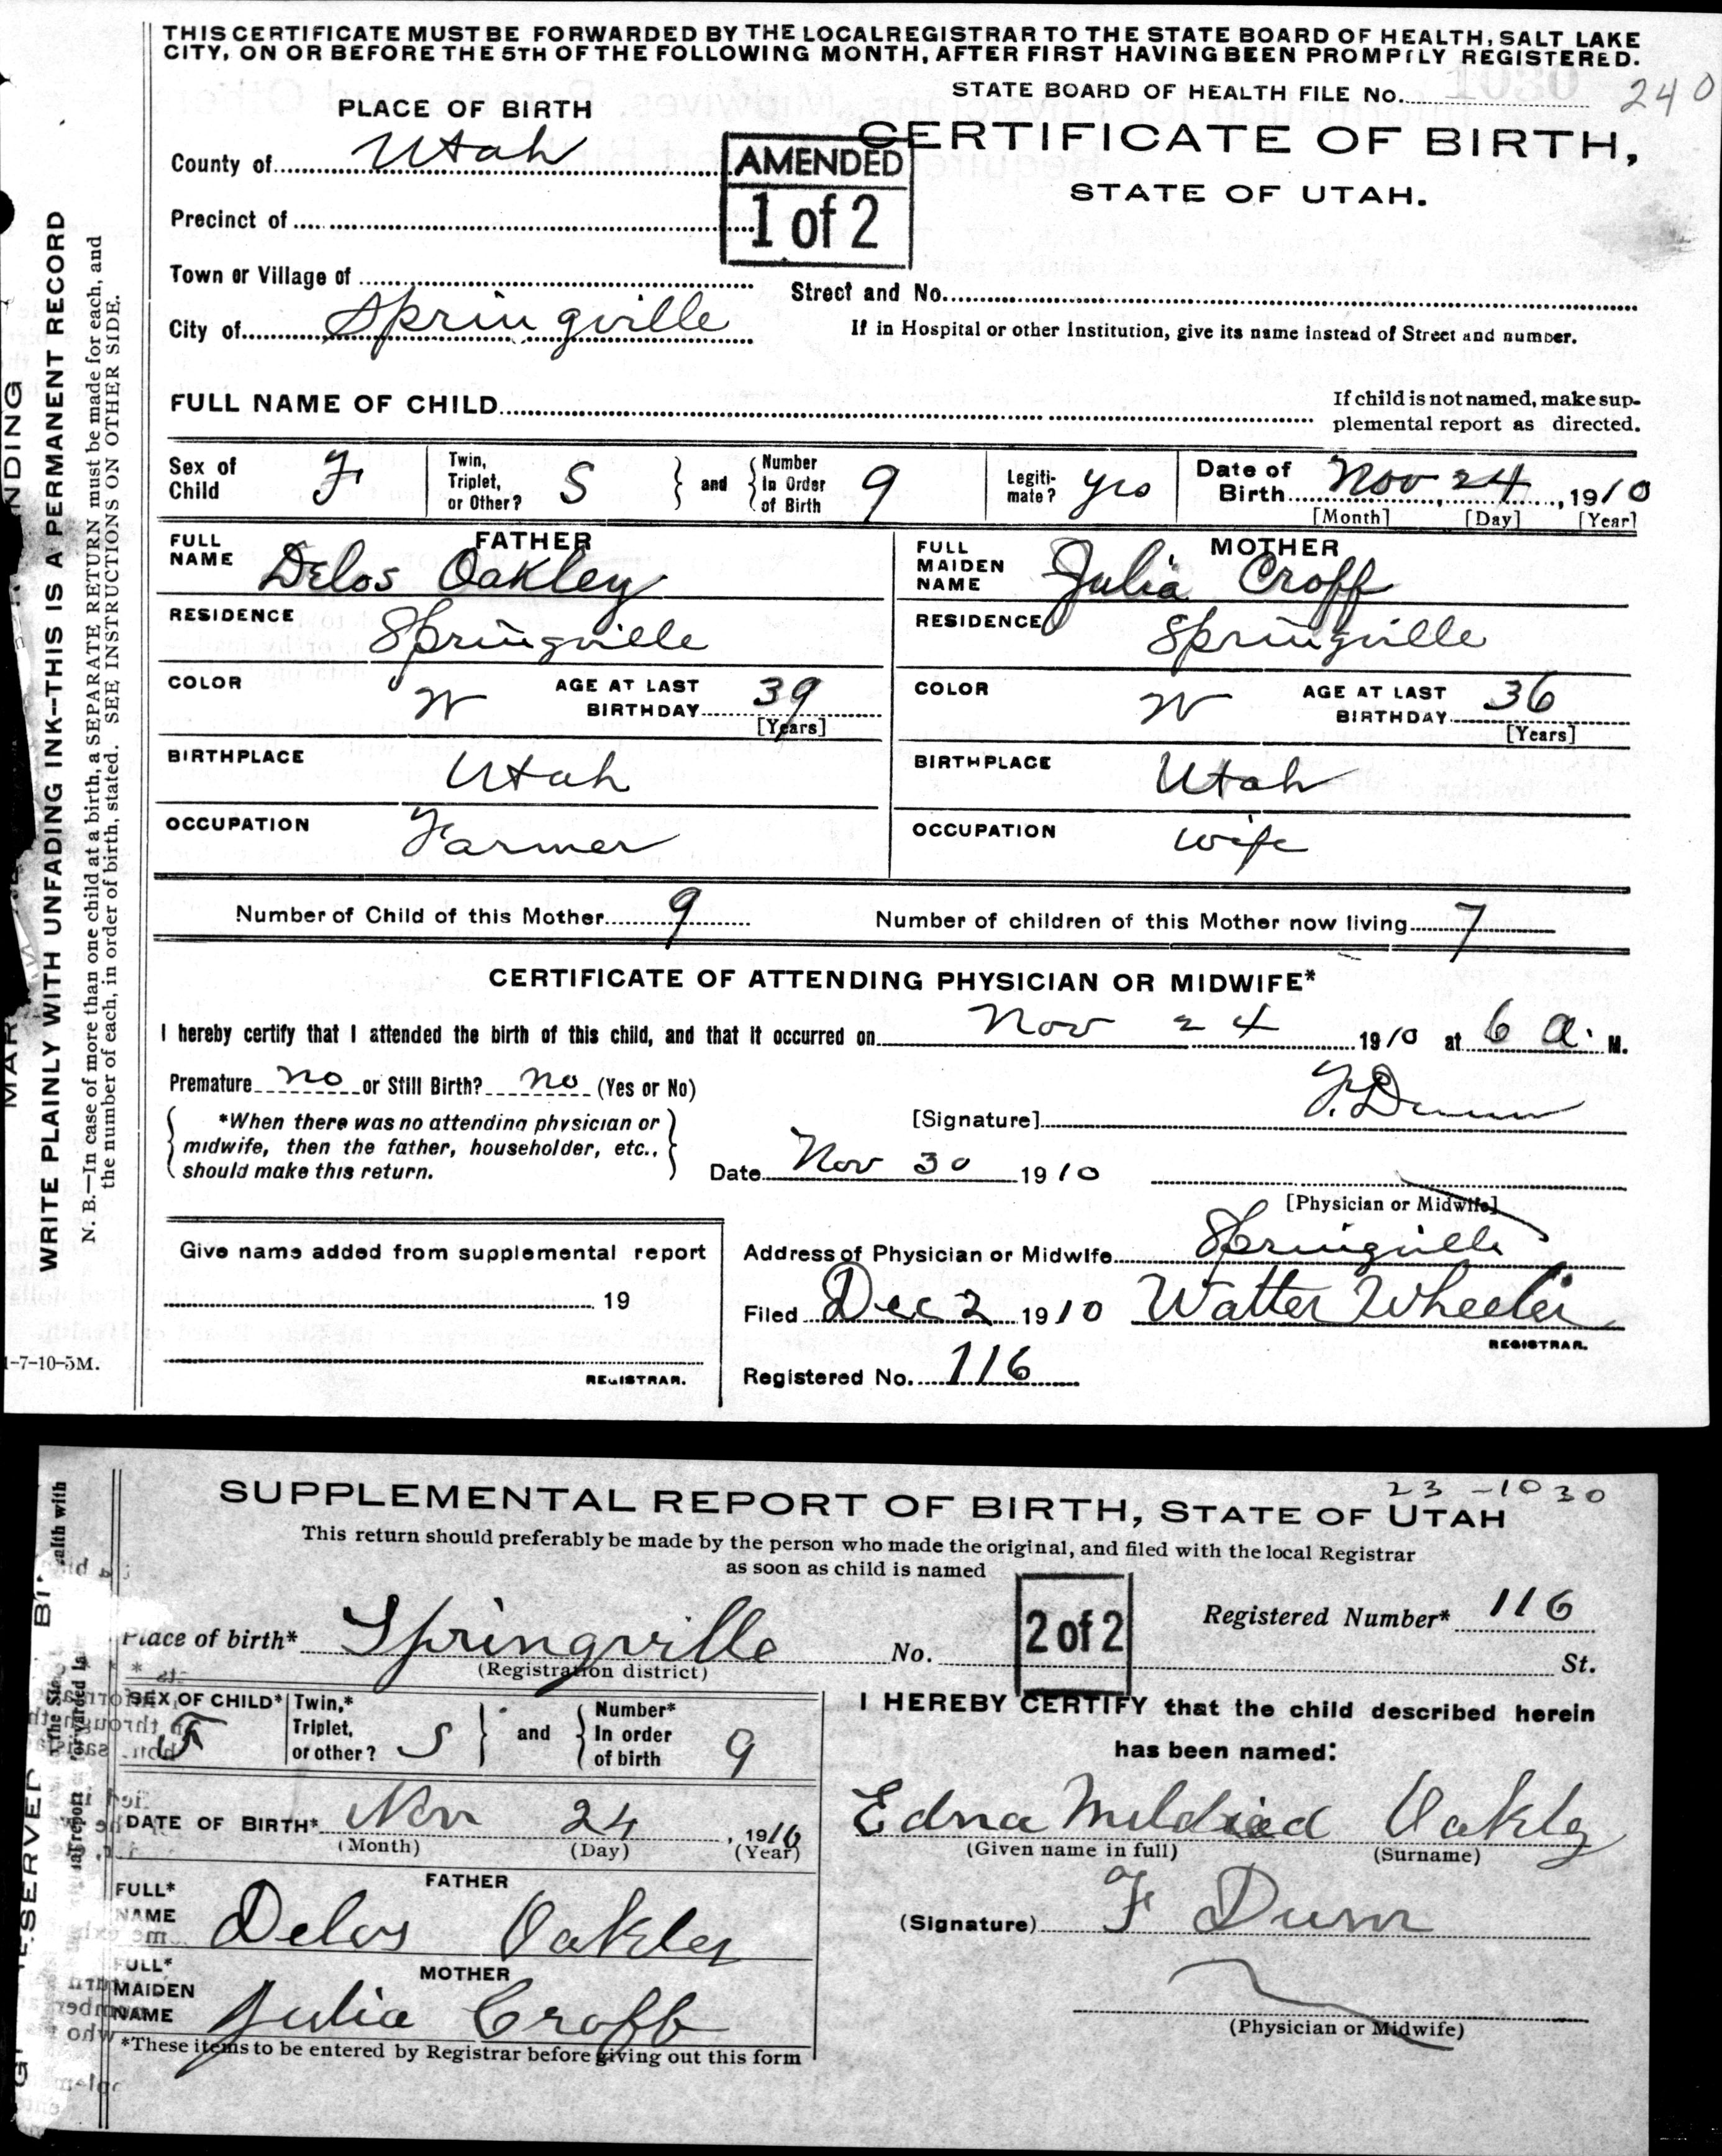 THIS CERTIFICATE MUST BE FORWARDED BY THE LOCAL REGISTRAR TO THE STATE BOARD OF HEALTH, SALT LAKE
CITY, ON OR BEFORE THE 5TH OF THE FOLLOWING MONTH, AFTER FIRST HAVING BEEN PROMPTLY REGISTERED.
STATE BOARD OF HEALTH FILE No. 240
PLACE OF BIRTH
CERTIFICATE OF BIRTH,
STATE OF UTAH.
County of Utah
AMENDED
1 of 2
Precinct of
Town or Village of
Street and No.
City of Springville
If in Hospital or other Institution, give its name instead of Street and number.
FULL NAME OF CHILD
If child is not named, make sup-
plemental report as directed.
Sex of Child F
Twin, Triplet, or Other? S and Number in Order of Birth 9
Legiti-mate? yes
Date of Birth Nov 24, 1910
[Month] [Day] [Year]
FATHER
FULL NAME Delos Oakley
MOTHER
FULL MAIDEN NAME Julia Croff
RESIDENCE Springville
RESIDENCE Springville
COLOR W AGE AT LAST BIRTHDAY 39 [Years]
COLOR W AGE AT LAST BIRTHDAY 36 [Years]
BIRTHPLACE Utah
BIRTHPLACE Utah
OCCUPATION Farmer
OCCUPATION wife
Number of Child of this Mother 9 Number of children of this Mother now living 7
CERTIFICATE OF ATTENDING PHYSICIAN OR MIDWIFE*
I hereby certify that I attended the birth of this child, and that it occurred on Nov 24 1910 at 6 a. M.
Premature no or Still Birth? no (Yes or No)
*When there was no attending physician or
midwife, then the father, householder, etc.,
should make this return.
[Signature] F. Dunn
Date Nov 30 1910
[Physician or Midwife]
Give name added from supplemental report
19
REGISTRAR.
Address of Physician or Midwife Springville
Filed Dec 2 1910 Walter Wheeler
REGISTRAR.
Registered No. 116
WRITE PLAINLY WITH UNFADING INK--THIS IS A PERMANENT RECORD
N. B.—In case of more than one child at a birth, a SEPARATE RETURN must be made for each, and
the number of each, in order of birth, stated. SEE INSTRUCTIONS ON OTHER SIDE.
1-7-10-5M.
23 -1030
SUPPLEMENTAL REPORT OF BIRTH, STATE OF UTAH
This return should preferably be made by the person who made the original, and filed with the local Registrar
as soon as child is named
2 of 2
Registered Number* 116
Place of birth* Springville No. St.
(Registration district)
SEX OF CHILD* F
Twin,* Triplet, or other? S and Number* In order of birth 9
I HEREBY CERTIFY that the child described herein
has been named:
DATE OF BIRTH* Nov 24, 1910
(Month) (Day) (Year)
Edna Mildred Oakley
(Given name in full) (Surname)
FATHER
FULL* NAME Delos Oakley
(Signature) F Dunn
MOTHER
FULL* MAIDEN NAME Julia Croff
(Physician or Midwife)
*These items to be entered by Registrar before giving out this form